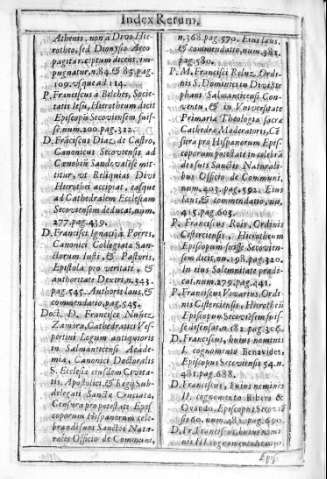 Index Rerum.
Athenis, non à Divo Hierotheo, sed Dionysio Areo
pagita receptum dicens, impugnatur, n. 84. & 85. pag.
109. usque ad 114.
P. Franciscus a Belchis, Societatis Iesu, Hierotheum dicit
Episcopũ Secoviensẽ fuisse num. 200. pag. 312.
D. Frãciscus Diaz, de Castro,
Canonicus Secoviensis ad
mittitur, ut Reliquias Divi
Hierothei accipiat, easque
ad Cathedralem Ecclesiam
Secoviensem deducat, num.
277. pag. 439.
D. Franciscus Ignatius Porres,
Canonici Collegiata Sanctorum Iusti, & Pastoris,
Epistola pro veritate, &
authoritate Dextri, n. 343.
pag. 545. Authoris laus, &
commendatio, pag. 545.
Doct. D. Francisci Nuñez
Zamora, Cathedratici Vespertini Legum antiquioris
in Salmanticensi Academia, Canonici Doctoralis
S. Ecclesiæ eiusdem Civitatis, Apostolici, & Regij Subdelegati Sanctæ Cruciatæ,
Censura pro potestate Episcoporum Hispanorum celebrandi suos Sanctos Naturales Officio de Communi,
n. 368. pag. 570. Eius laus,
& commendatio, num. 381.
pag. 580.
P. M. Francisci Reluz, Ordinis S. Dominici in Divi Stephani Salmanticensi Conventu, & in Vniversitate
Primariæ Theologiæ sacræ
Cathedræ Moderatoris, Cẽsura pro Hispanorum Episcoporum potestate in celebrãdo suos Sanctos Naturalibus Officio de Communi,
num. 403. pag. 592. Eius
laus, & commendatio, num.
415. pag. 603.
P. Franciscus Rois, Ordinis
Cisterciensis, Hierotheum
Episcopum fuisse Secoviensem dicit, n. 198. pag. 310.
In eius Salmenitate prædicat, num. 279. pag. 441.
P. Franciscus Vivarius, Ordinis Cisterciensis, Hierothei
Episcopum Secoviensem fuisse
n. 182. pag. 306.
D. Franciscus, huius nominis
I. cognomento Benavides
Episcopus Secoviensis 54. n.
481. pag. 688.
D. Franciscus, huius nominis
II. cognomento Ribero &
Obando, Episcopus Secoviẽsis 60. num. 483. pag. 690.
D. Fr. Franciscus, huius nominis III. cognomento